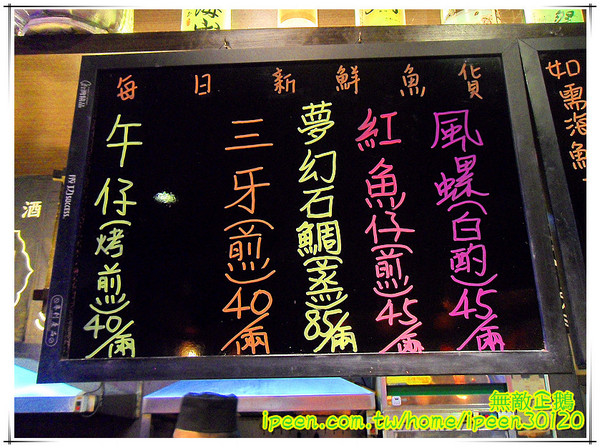 每日新鮮魚貨
風螺(白酌)45/兩
紅魚仔(煎)45/兩
夢幻石鯛(蒸)85/兩
三牙(煎)40/兩
午仔(烤煎)40/兩
如需海鮮
酒
SUCCESS
無敵企鵝
ipeen.com.tw/home/ipeen30120